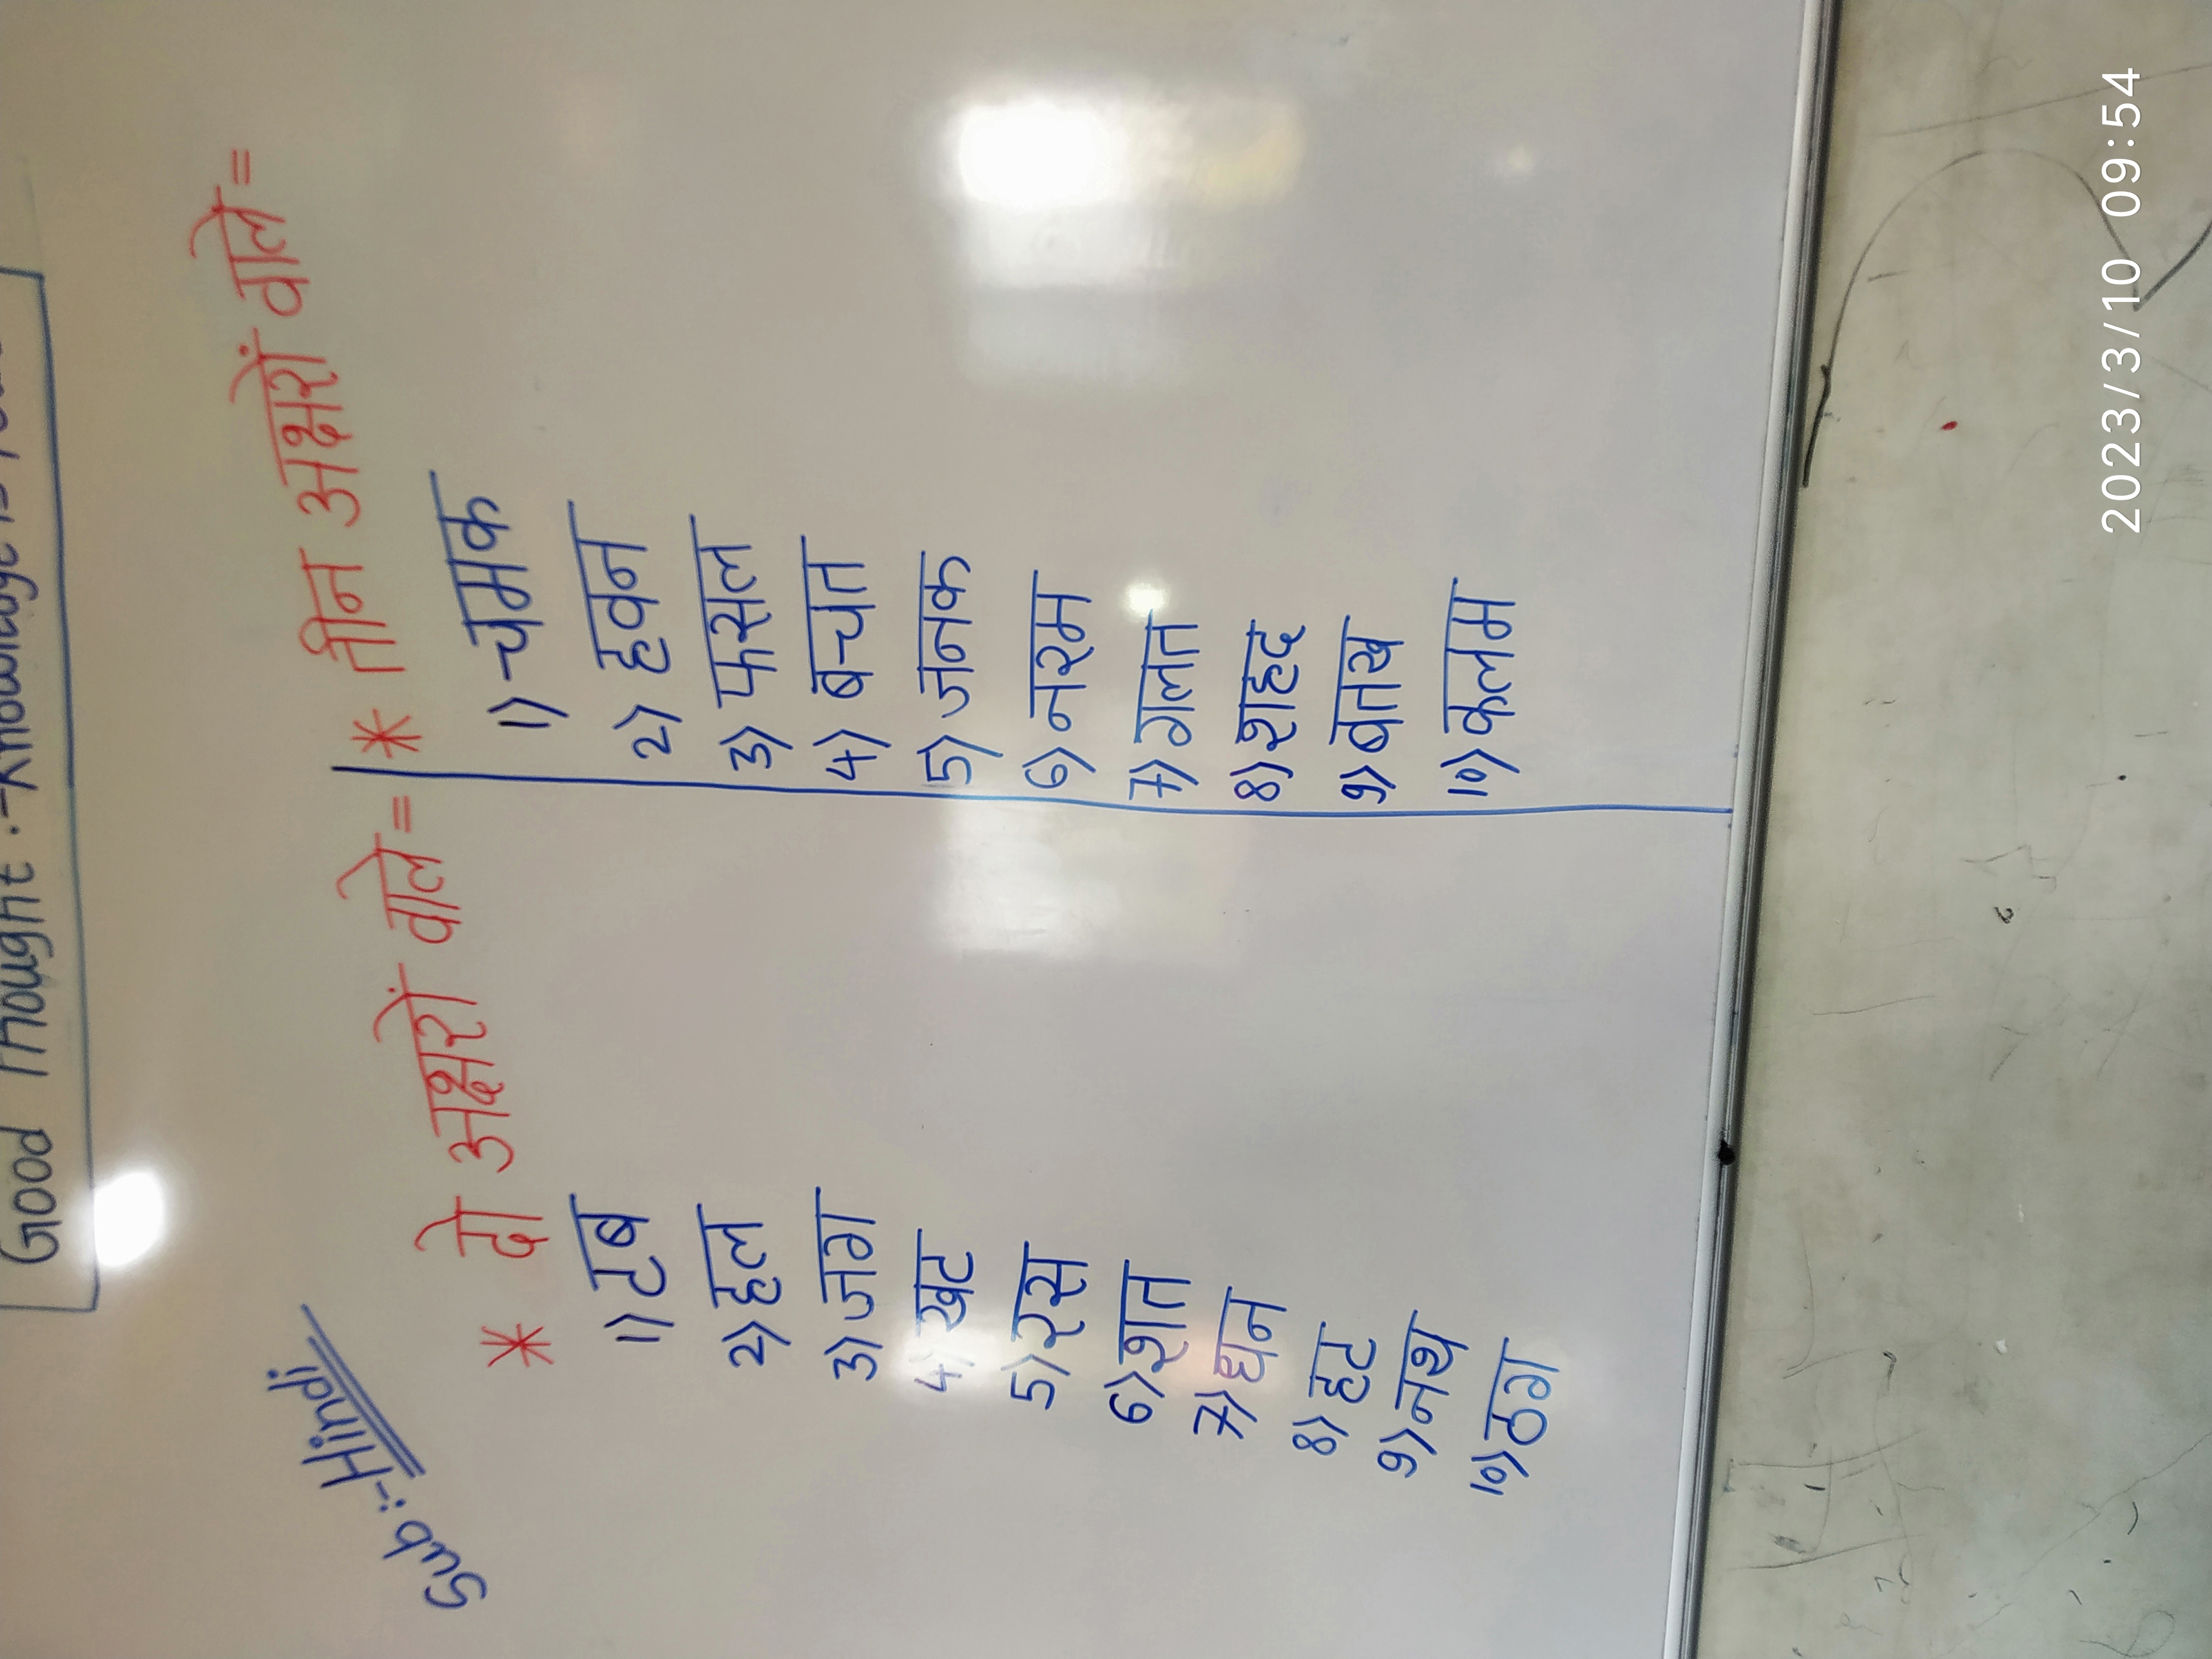 Good Thought :- Knowledge is
Sub :- Hindi
* दो अक्षरों वाले =
1) टब
2) हल
3) जग
4) खट
5) रस
6) शत
7) धन
8) हट
9) नथ
10) ठग
* तीन अक्षरों वाले =
1) चमक
2) हवन
3) फसल
4) बचत
5) जनक
6) नरम
7) गलत
8) शहद
9) बतख
10) कलम
2023/3/10 09:54